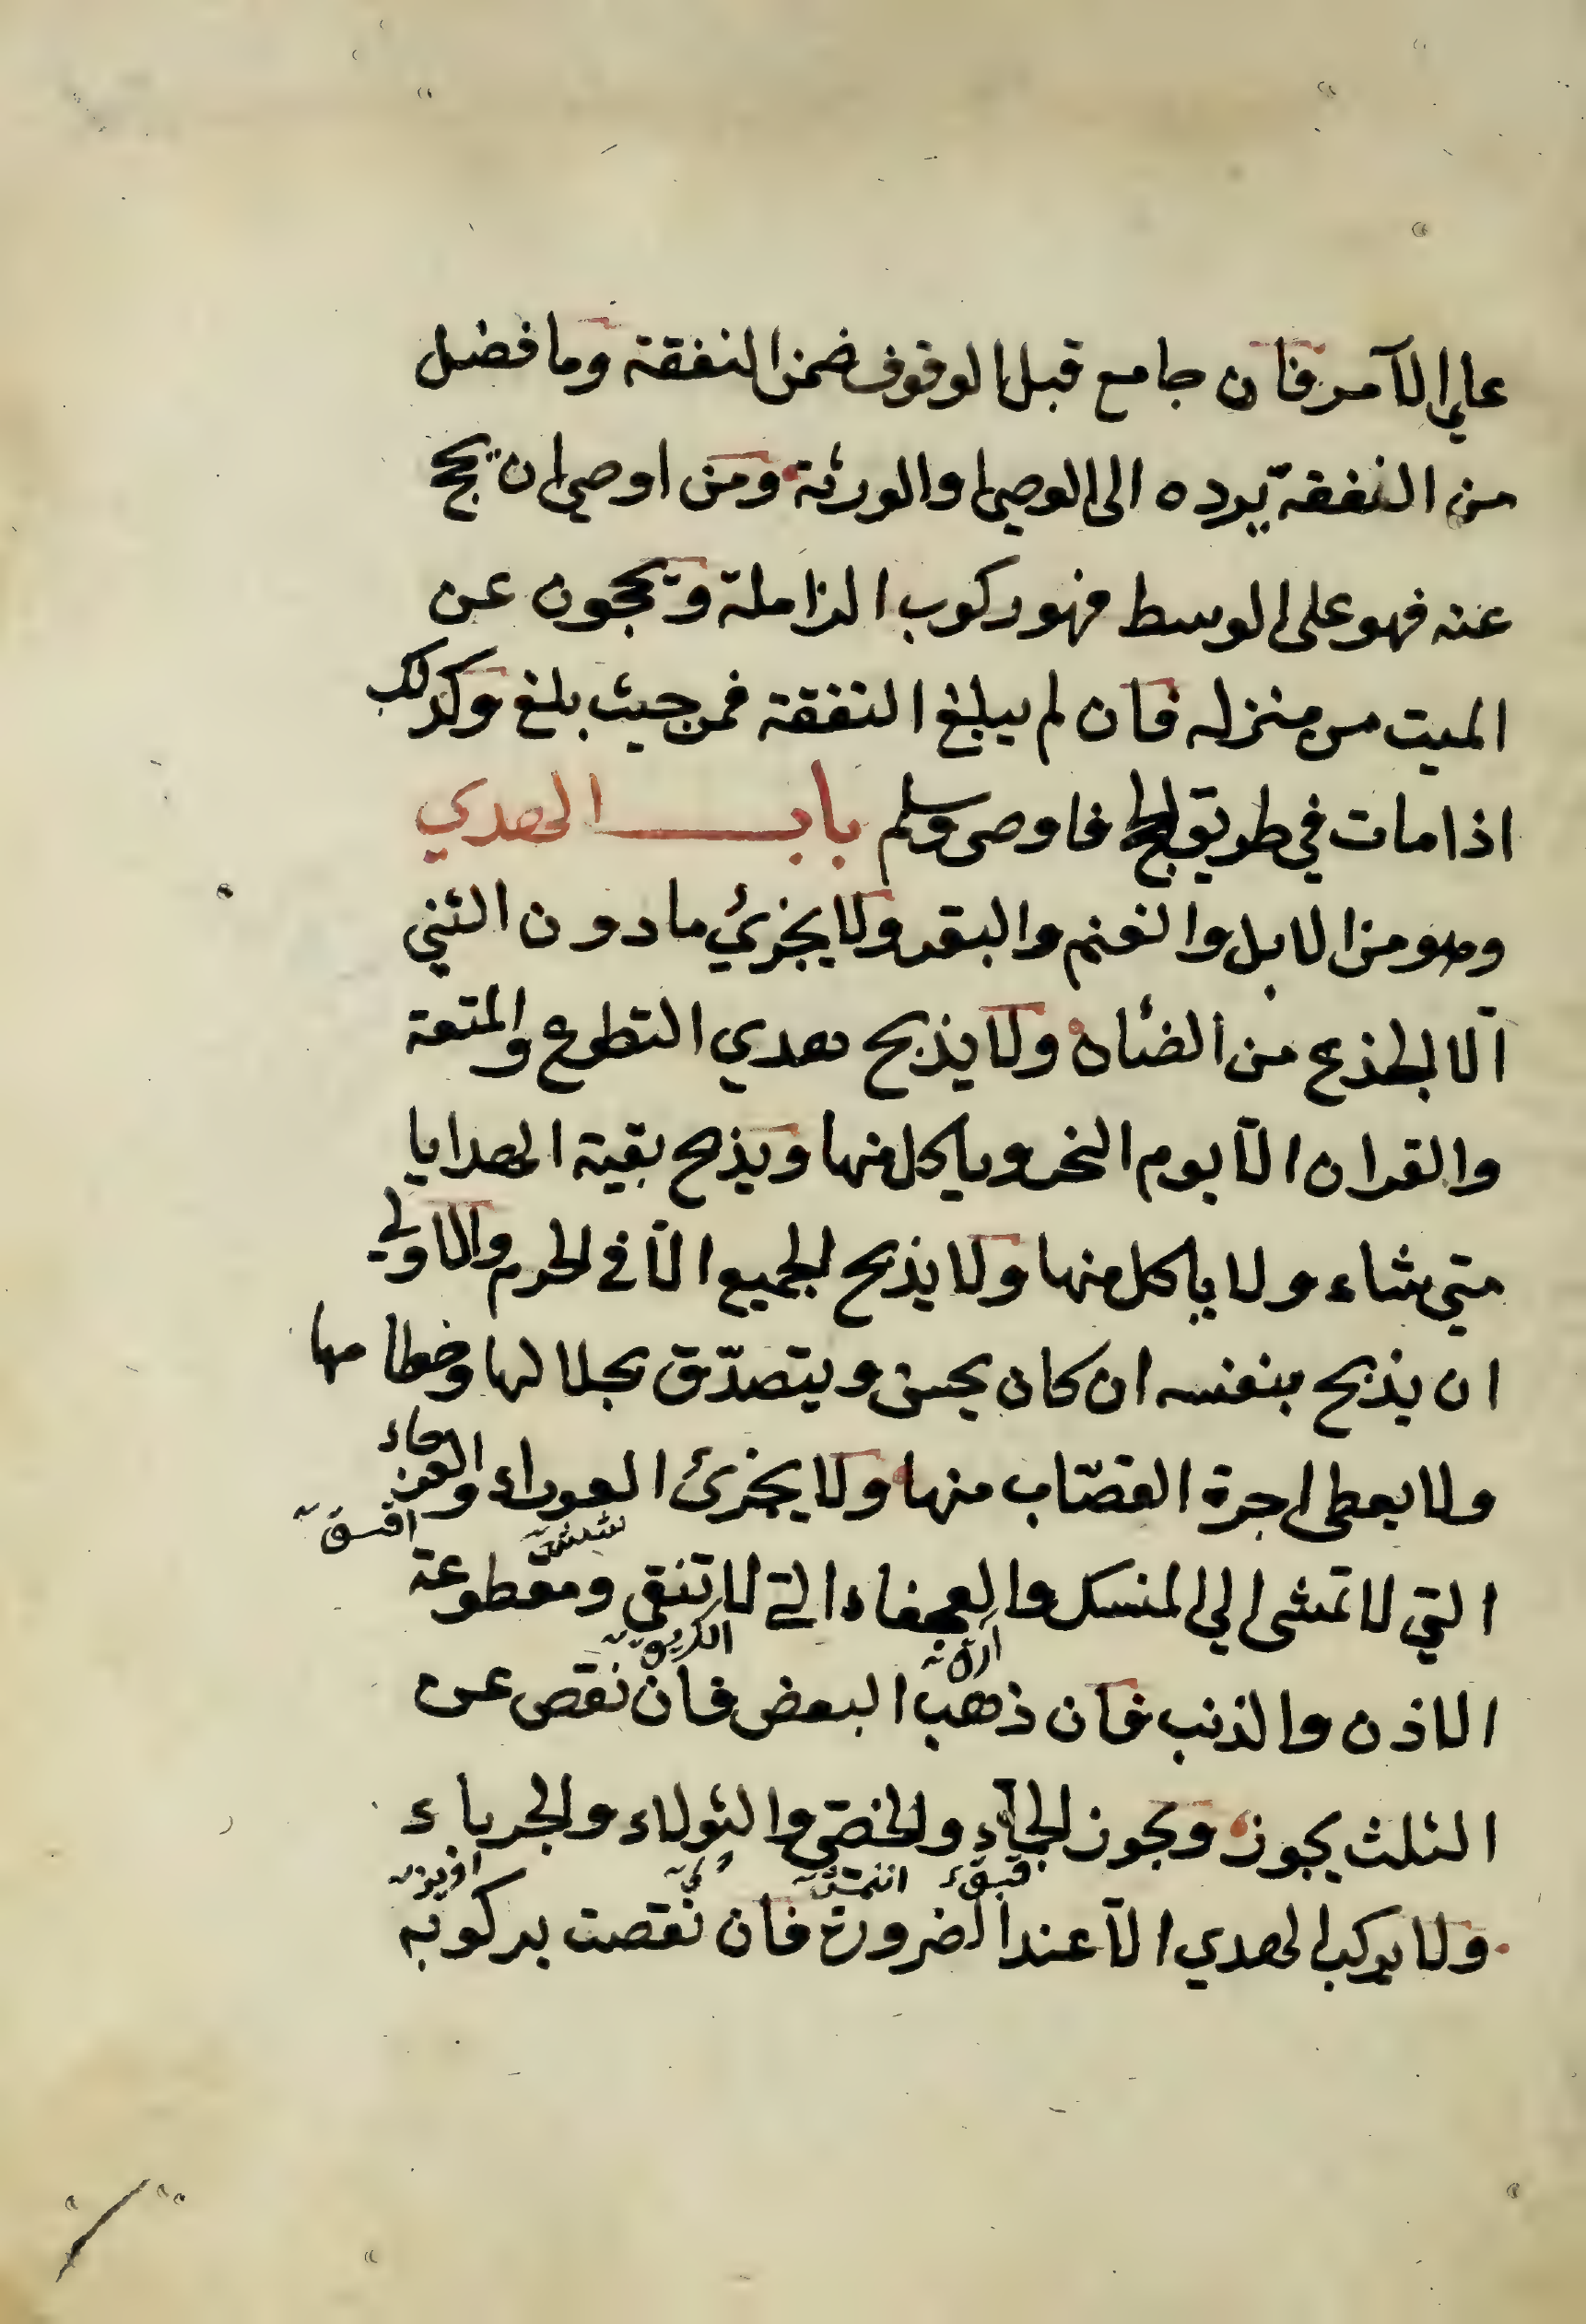 علي الآمر فان جامع قبل الوقوف ضمن النفقة وما فضل
من النفقة يرده الى الوصي او الورثة ومن اوصي ان يحج
عنه فهو على الوسط فهو ركوب الزاملة ويحجون عن
الميت من منزله فان لم يبلغ النفقة فمن حيث بلغ وكذلك
اذا مات في طريق الحج فاوصى وسلم باب الهدي
وهو من الابل والغنم والبقر ولا يجزئ ما دون الثني
الّا الجذع من الضئان ولا يذبح هدي التطوع والمتعة
والقران الّا يوم النحر وياكل منها ويذبح بقية الهدايا
متي شاء ولا ياكل منها ولا يذبح الجميع الّا في الحرم والاولي
ان يذبح بنفسه ان كان يحسن ويتصدّق بجلالها وخطامها
ولا يعطى اجرة القصّاب منها ولا يجزئ العوراء والعرجاء
التي لا تمشى الي المنسك والعجفاء التي لا تنقي ومقطوعة
الاذن والذنب فان ذهب البعض فان نقص عن
الثلث يجوز ويجوز الجمّاء والخصّي والثولاء والجرباء
ولا يركب الهدي الّا عند الضرورة فان نقصت بركوبه